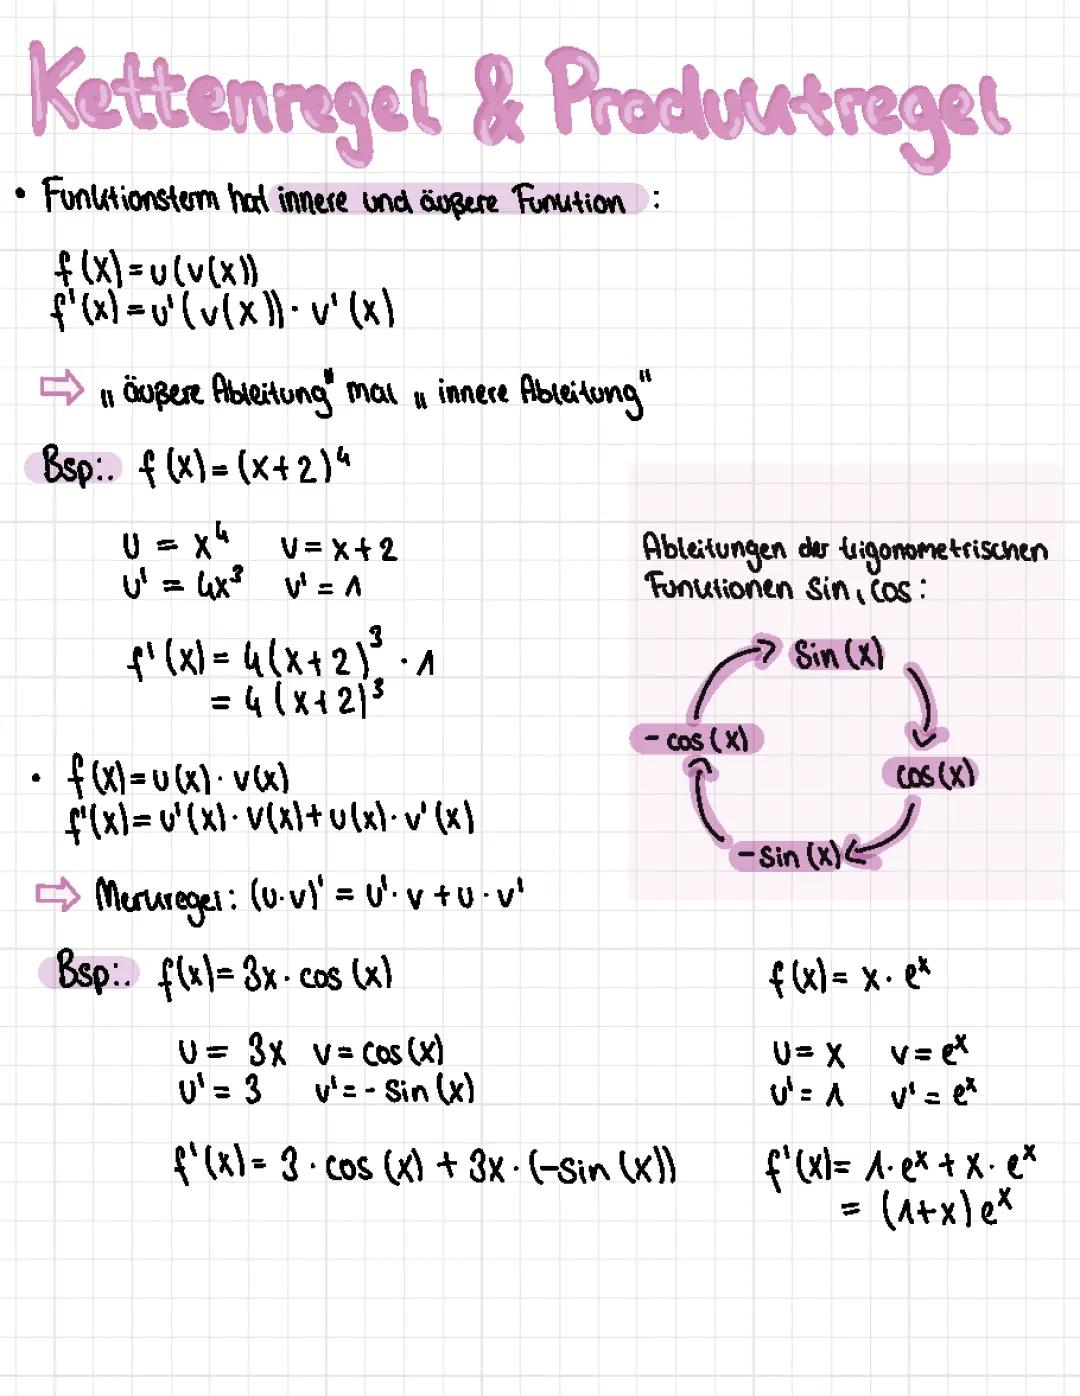 Kettenregel & Produktregel
• Funktionsterm hat innere und äußere Funktion :
f(x) = u(v(x))
f'(x) = u'(v(x)) · v'(x)
⇨ „äußere Ableitung" mal „innere Ableitung"
Bsp.: f(x) = (x+2)⁴
u = x⁴ v = x+2
u' = 4x³ v' = 1
f'(x) = 4(x+2)³ · 1
= 4(x+2)³
Ableitungen der trigonometrischen
Funktionen sin, cos :
sin(x)
- cos(x)
cos(x)
- sin(x)
• f(x) = u(x) · v(x)
f'(x) = u'(x) · v(x) + u(x) · v'(x)
⇨ Merkregel: (u·v)' = u' · v + u · v'
Bsp.: f(x) = 3x · cos(x)
u = 3x v = cos(x)
u' = 3 v' = - sin(x)
f'(x) = 3 · cos(x) + 3x · (-sin(x))
f(x) = x · eˣ
u = x v = eˣ
u' = 1 v' = eˣ
f'(x) = 1 · eˣ + x · eˣ
= (1+x) eˣ